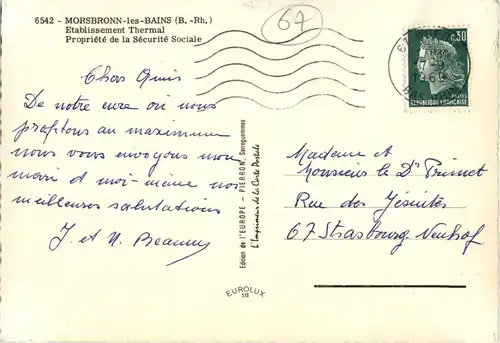 6542 - MORSBRONN-les-BAINS (B.-Rh.)
Etablissement Thermal
Propriété de la Sécurité Sociale
67
0,30
1969
POSTES
REPUBLIQUE FRANÇAISE
Chers Amis
De notre cure ou nous
profitons au maximum
nous vous envoyons mon
mari et moi-même nos
meilleures salutations
J. et N.
Edition de l'EUROPE - PIERRON, Sarreguemines
L'Imprimeur de la Carte Postale
Madame et
Monsieur le Dr
Rue des Jésuites
67 Strasbourg-Neuhof
EUROLUX